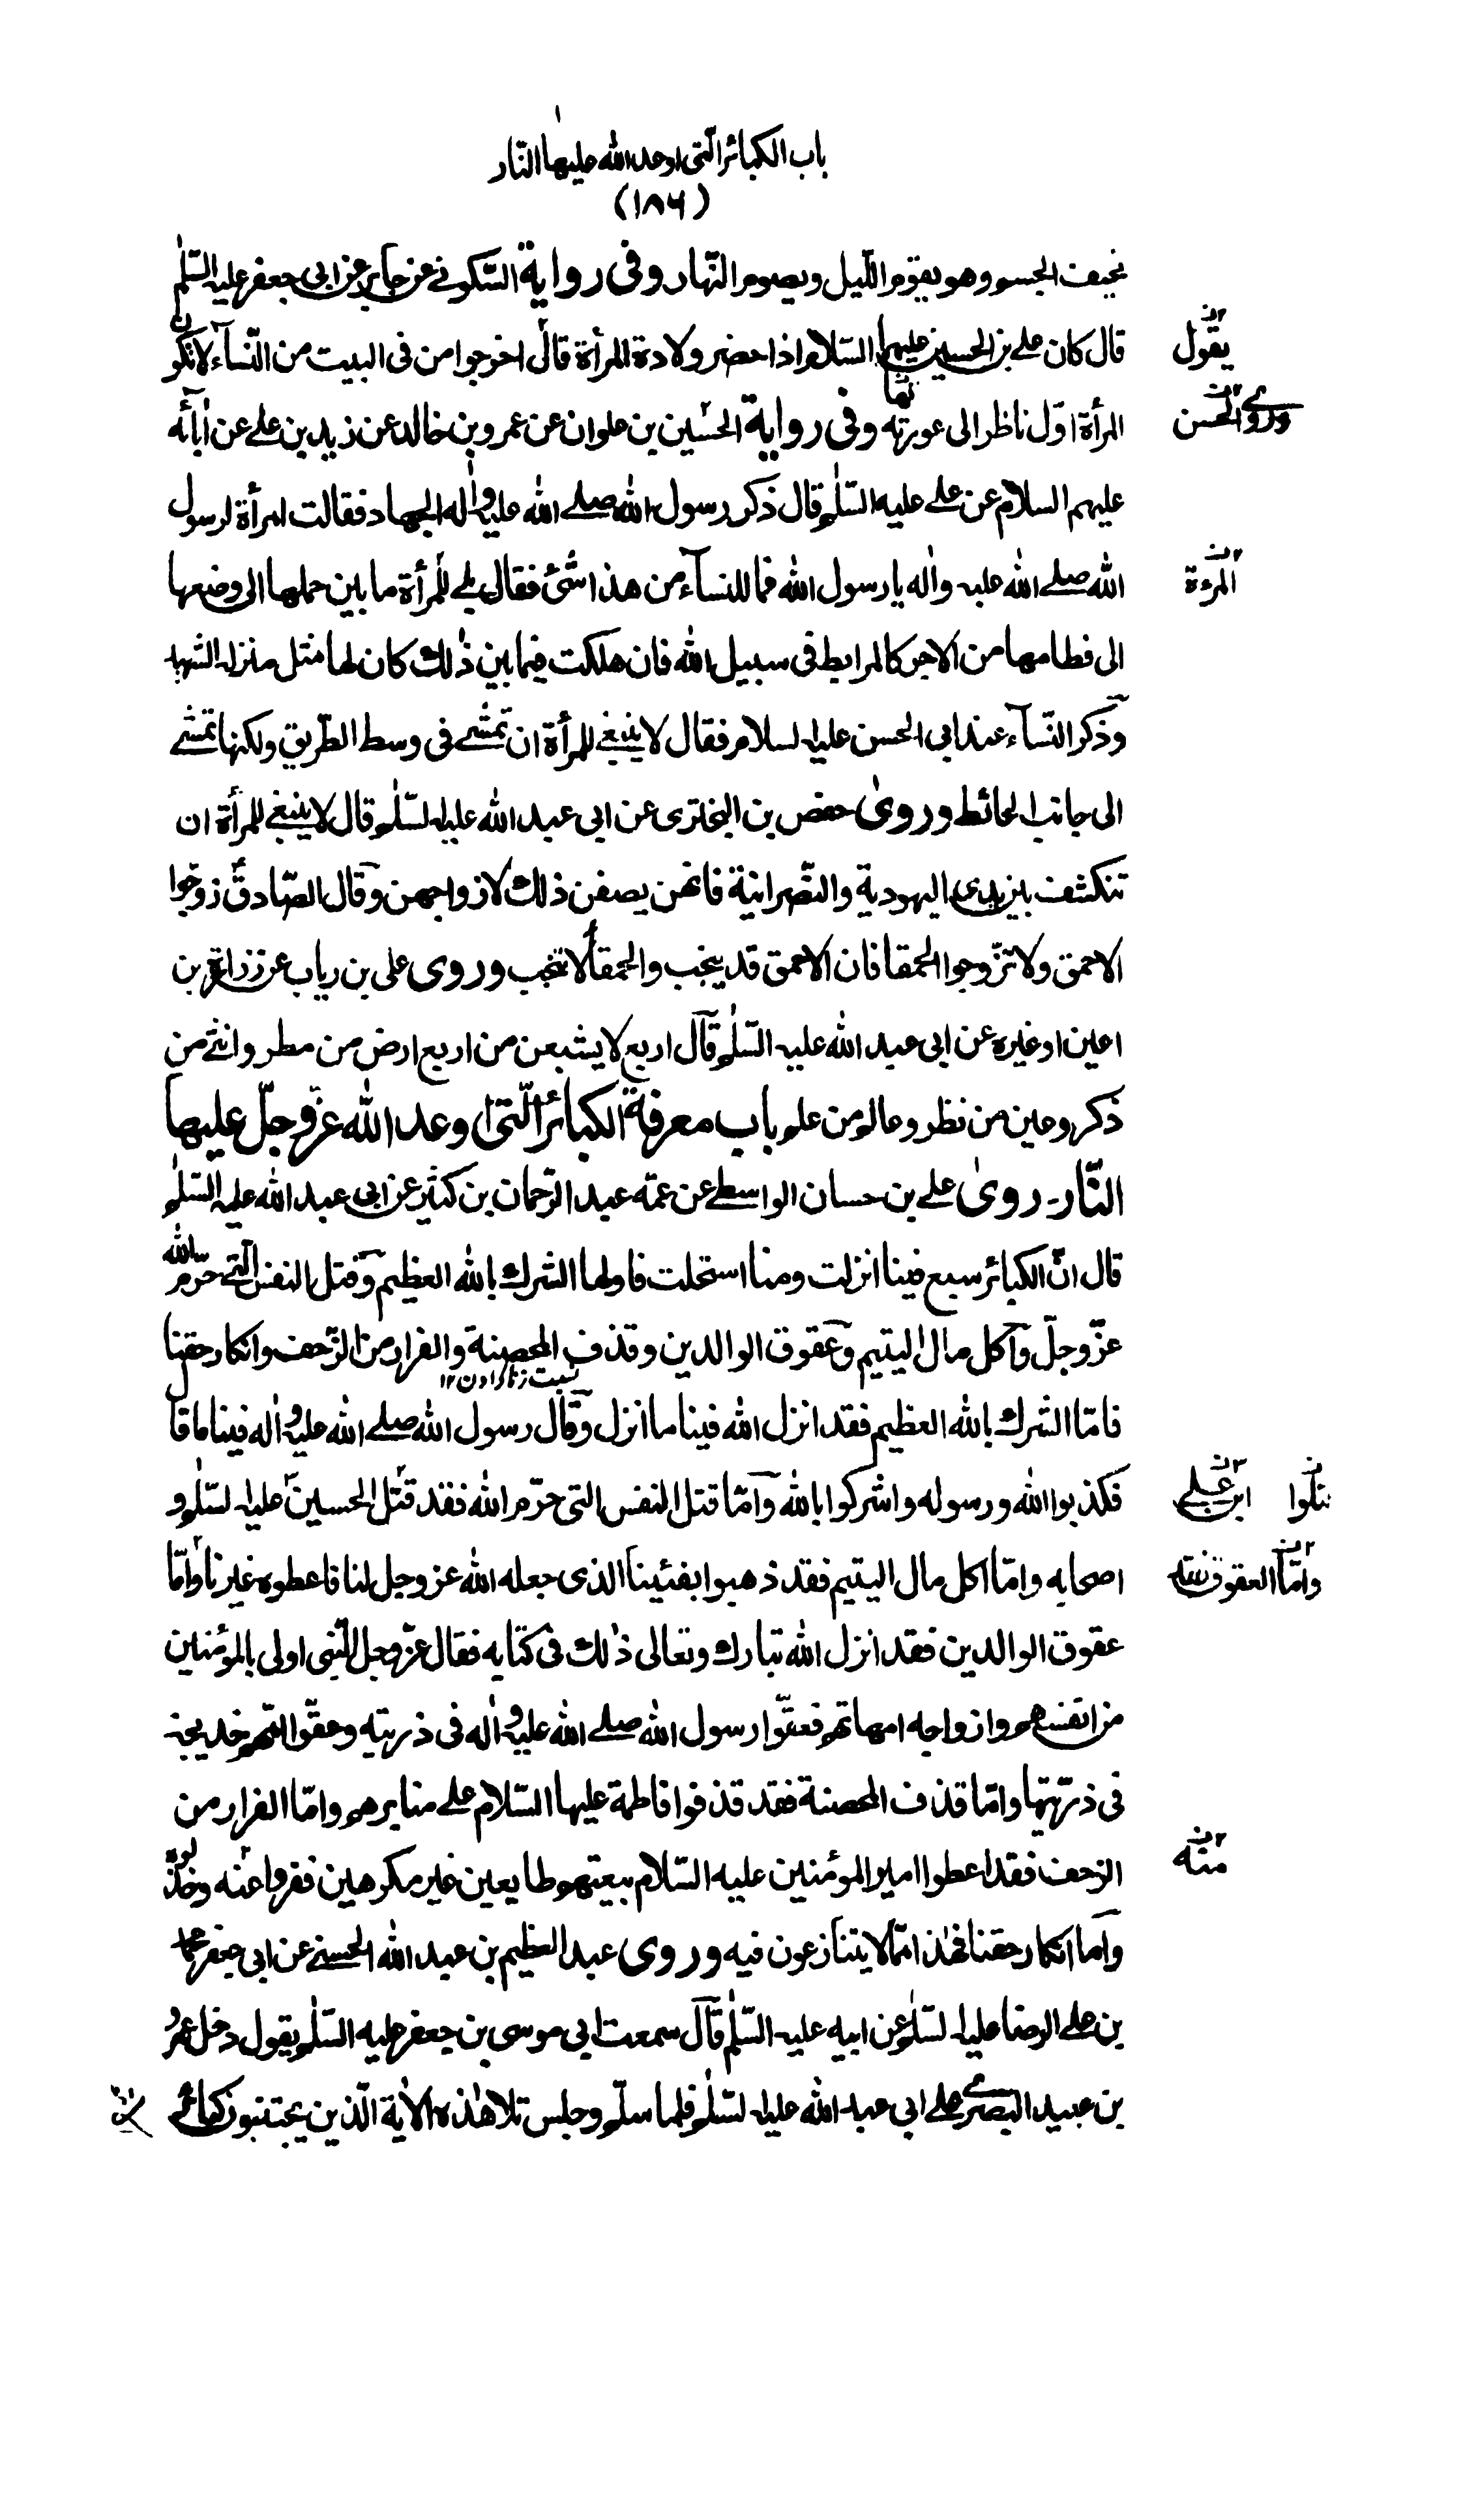 باب الكبائر التى اوعد الله عليها النار
(١٨٦)
نحيف الجسم وهو يقوم الليل ويصوم النهار وفى رواية السكونے عن جابر عن ابى جعفر عليه السلم
قال كان علے بن الحسين عليهما السلام اذا حضر ولادة المرأة قال اخرجوا من فى البيت من النسآء لا تكون
يقول
المرأة اوّل ناظر الى عورته وفى رواية الحسين بن علوان عن عمرو بن خالد عن زيد بن علے عن اٰبآئه
وروے الحسن
عليهم السلام عن علے عليه السّلم قال ذكر رسول الله صلے الله عليه واٰله الجهاد فقالت امرأة لرسول
الله صلے الله عليه واٰله يا رسول الله فما للنسآء من هذا شئ فقال بلے للمرأة ما بين حملها الى وضعها
المرءة
الى فطامها من الاجر كالمرابط فى سبيل الله فان هلكت فيما بين ذٰلك كان لها مثل منزلة الشهيد
وذكر النسآء عند ابى الحسن عليه السلام فقال لا ينبغے للمرأة ان تمشے فى وسط الطريق ولكنها تمشے
الى جانب الحائط وروىٰ حفص بن البخترى عن ابى عبد الله عليه السّلم قال لا ينبغے للمرأة ان
تنكشف بين يدى اليهودية والنصرانية فانهن يصفن ذلك لازواجهن وقال الصّادق زوّجوا
الاحمق ولا تزّوجوا الحمقا فان الاحمق قد ينجب والحمقا لا تنجب وروى على بن رياب عن زرارة بن
اعين او غيره عن ابى عبد الله عليه السّلم قال اربع لا يشبعن من اربع ارض من مطر وانثے من
ذكر وعين من نظر وعالم من علم باب معرفة الكبائر الّتى اوعد الله عزّوجلّ عليها
النّار۔ روىٰ علے بن حسان الواسطے عن عمّه عبد الرّحمان بن كثير عن ابى عبد الله عليه السّلم
قال انّ الكبائر سبع فينا انزلت ومنا استحلت فاولها الشرك بالله العظيم وقتل النفس الّتے حرّم الله
عزّوجلّ وآكل مال اليتيم وعقوق الوالدين وقذف المحصنة والفرار من الزّحف وانكار حقنا
نسبت زنا دادن ١٢
فامّا الشرك بالله العظيم فقد انزل الله فينا ما انزل وقال رسول الله صلے الله عليه واٰله فينا ما قال
فكذبوا الله ورسوله واشركوا بالله وآمّا قتل النفس التى حرّم الله فقد قتل الحسين عليه السّلم و
اصحابه وامّا اكل مال اليتيم فقد ذهبوا بفئينا الذى جعله الله عز وجل لنا فاعطوه غيرنا وامّا
وامّا العقوق
عقوق الوالدين فقد انزل الله تبارك وتعالى ذٰلك فى كتابه فقال عزّوجل النبى اولى بالمؤمنين
من انفسهم وازواجه امهاتهم فعقّوا رسول الله صلے الله عليه واٰله فى ذريته وعقّوا امّهم خديجة
فى ذرّيتها وامّا قذف المحصنة فقد قذفوا فاطمة عليها السّلام علے منابرهم وامّا الفرار من
الزحف فقد اعطوا امير المؤمنين عليه السّلام بيعتهم طايعين غير مكرهين ففروا عنه وخذلوه
منه
وآما انكار حقنا فهٰذا ممّا لا يتنازعون فيه وروى عبد العظيم بن عبد الله الحسنے عن ابى جعفر محمد
بن علے الرضا عليه السّلم عن ابيه عليه السّلم قال سمعت ابى موسى بن جعفر عليه السّلم يقول دخل عمرو
بن عبيد البصرے علے ابى عبد الله عليه السّلم فلما سلّم وجلس تلا هٰذه الاٰية الّذين يجتنبون كبائر